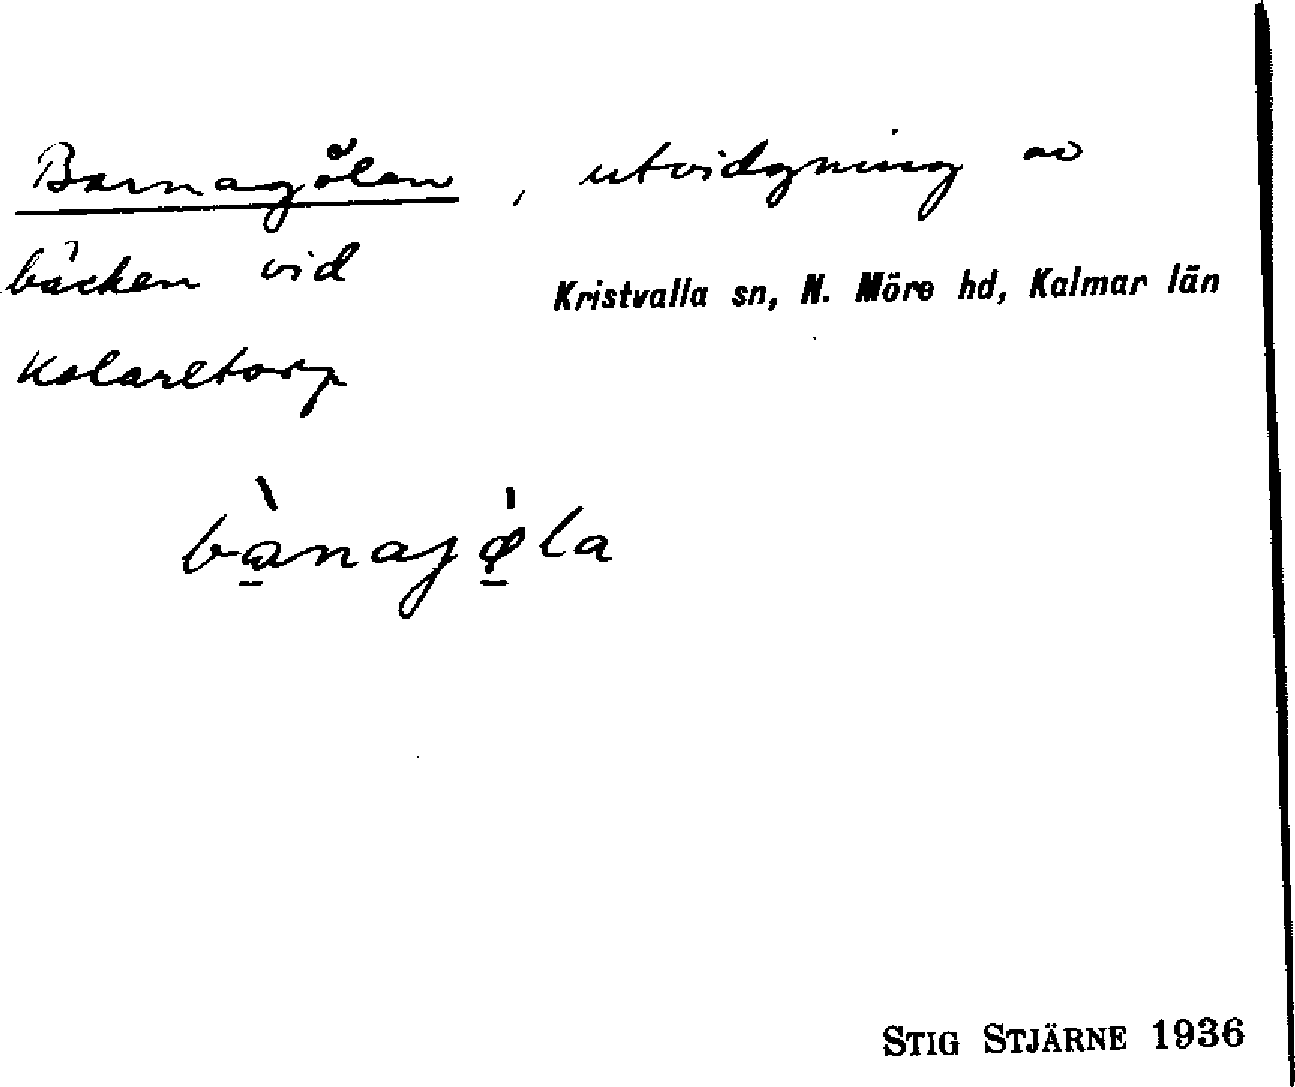 Barnagölen, utvidgning av
bäcken vid
Kristvalla sn, N. Möre hd, Kalmar län
Kolaretorp
bànajǿla
STIG STJÄRNE 1936